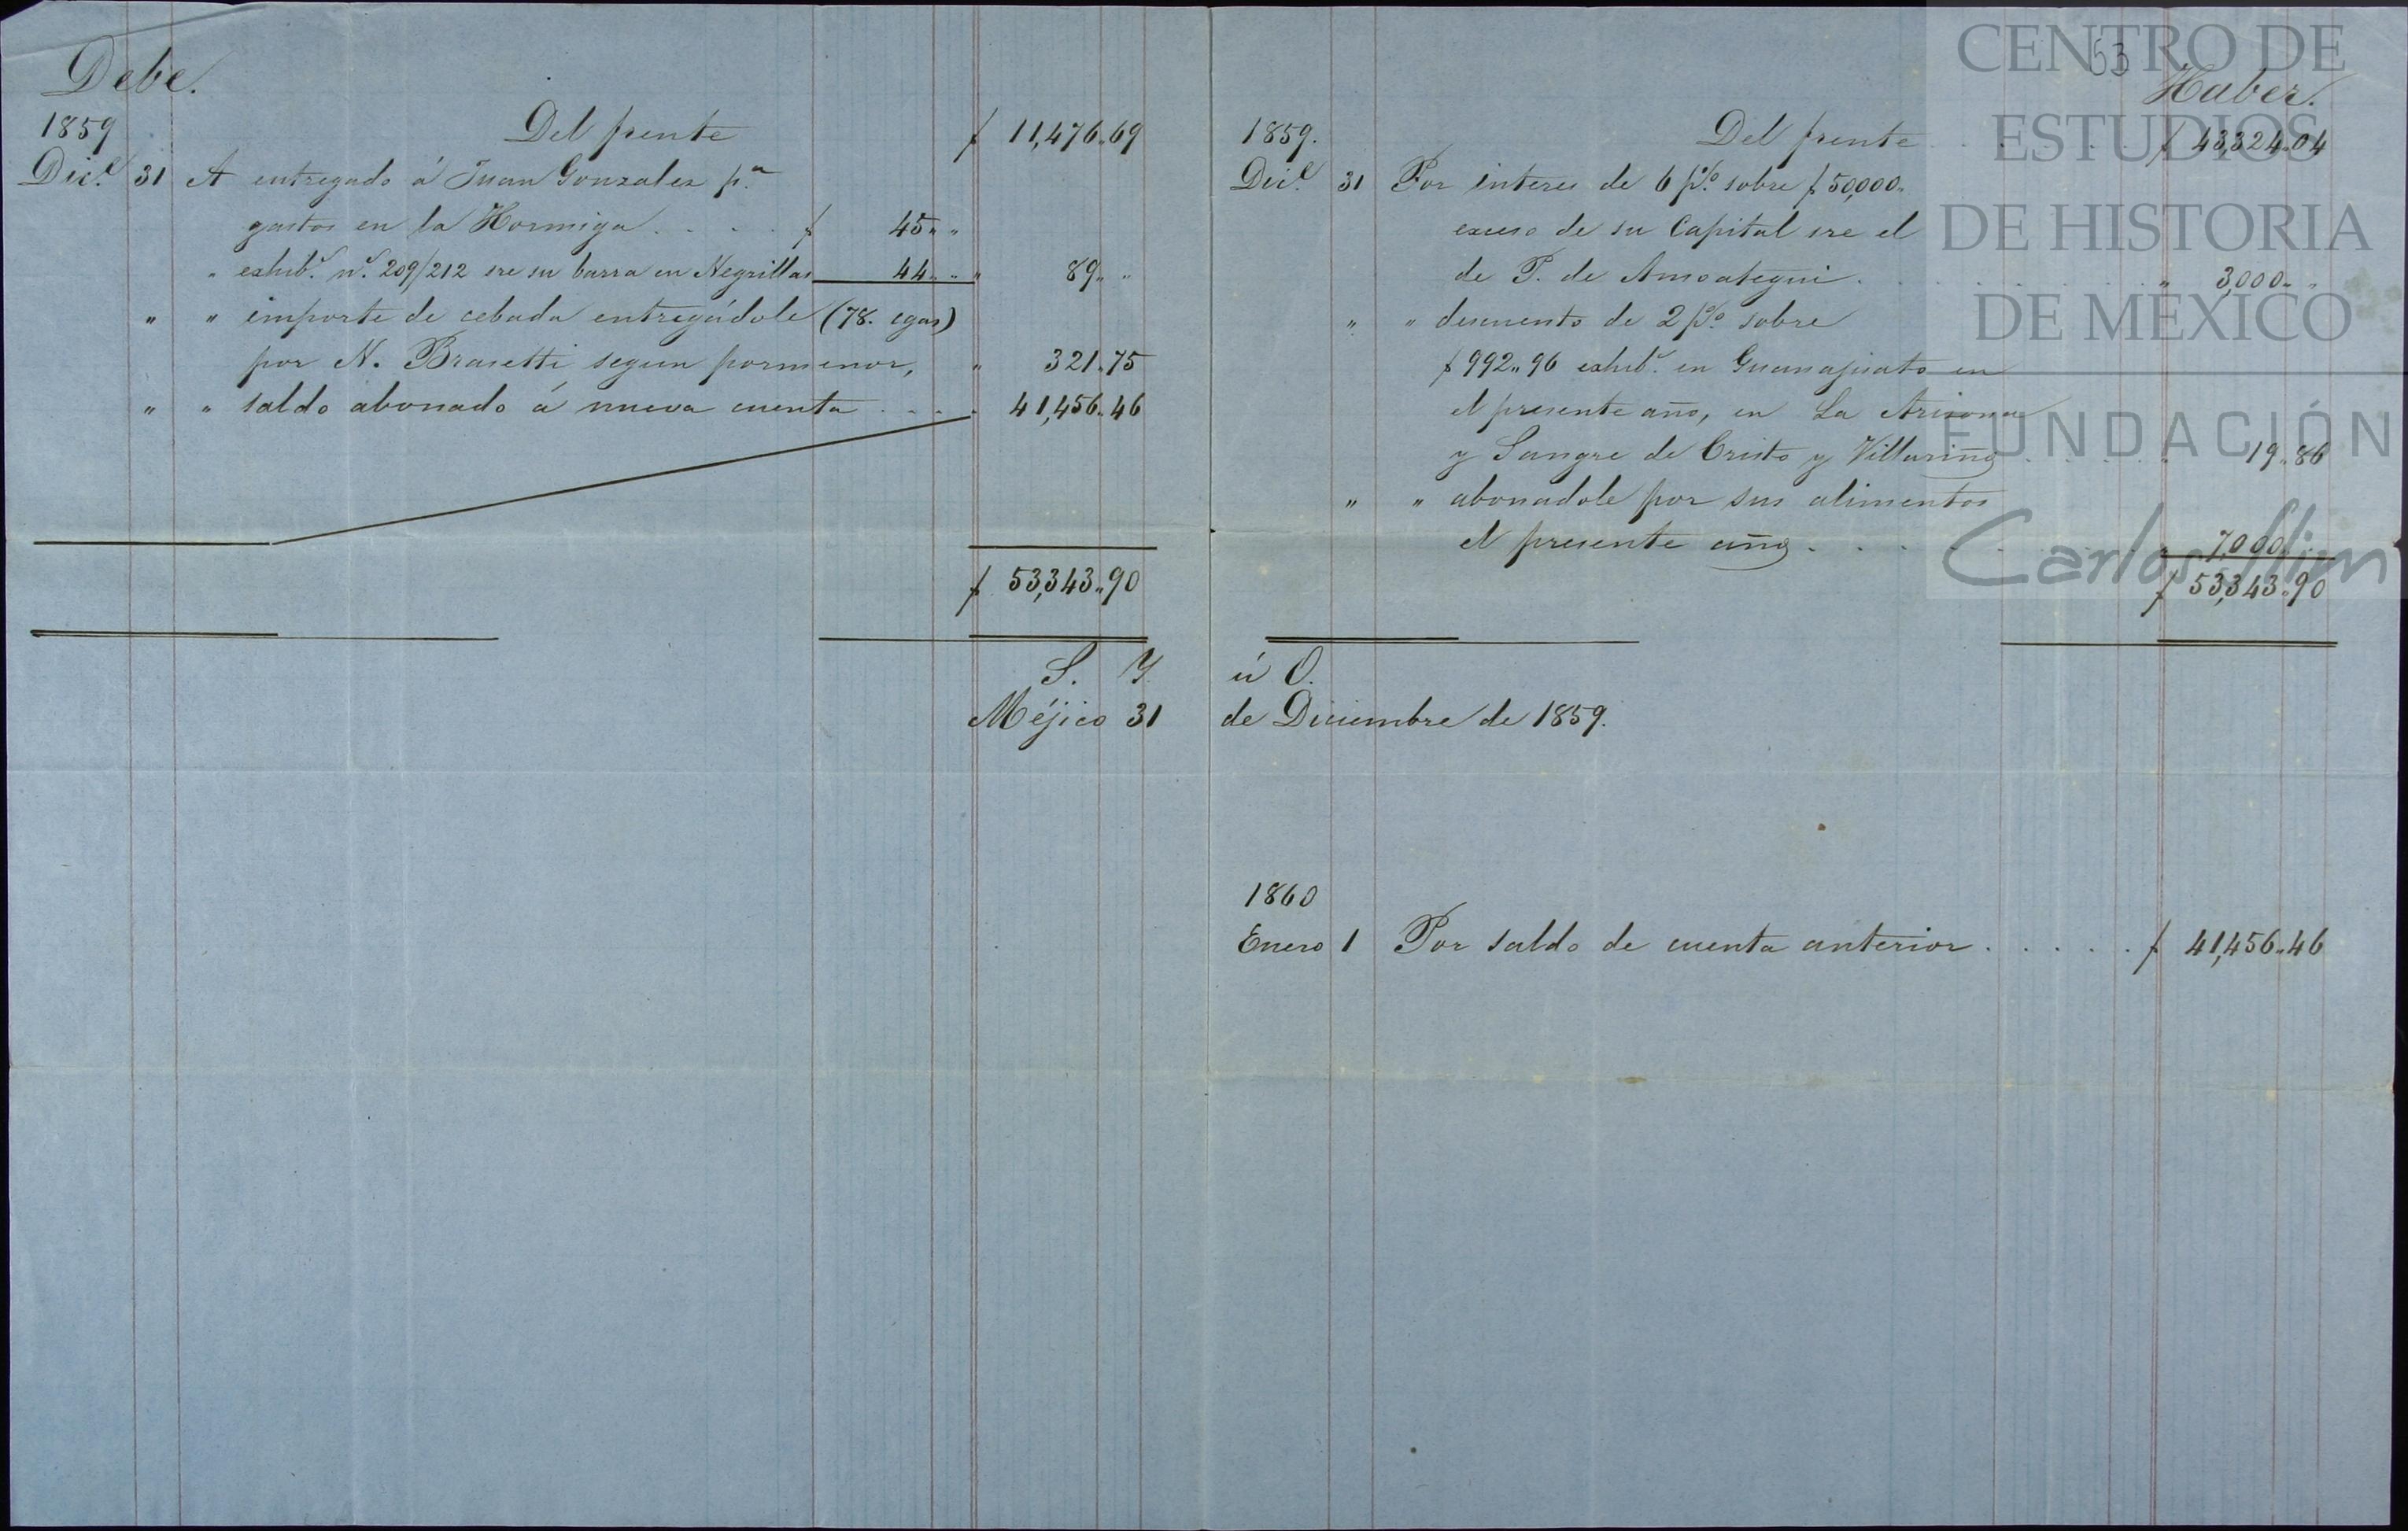 Debe.
1859
Del frente $ 11,476"69
Dic.e 31 A entregado á Juan Gonzalez p.a
gastos en la Hormiga . . . . $ 45" "
" exhib.s n.s 209/212 sre su barra en Negrillas 44" " " 89" "
" " importe de cebada entregádole (78. cgas)
por N. Brasetti segun pormenor, " 321"75
" " saldo abonado á nueva cuenta . . . . 41,456"46
$ 53,343"90
53
Haber.
1859.
Del frente . . . . . $ 43,324"04
Dic.e 31 Por interes de 6 p%o sobre $ 50,000"
exceso de su Capital sre el
de P. de Amoategui . . . . . " 3,000" "
" " descuento de 2 p%o sobre
$ 992"96 exhib.s en Guanajuato en
el presente año, en La Arizona
y Sangre de Cristo y Villarino . . . . . " 19"86
" " abonadole por sus alimentos
el presente año . . . . . " 7,000"
$ 53,343"90
S. Y. ú O.
Méjico 31 de Diciembre de 1859.
1860
Enero 1 Por saldo de cuenta anterior . . . . . $ 41,456"46
CENTRO DE
ESTUDIOS
DE HISTORIA
DE MEXICO
FUNDACIÓN
Carlos Slim